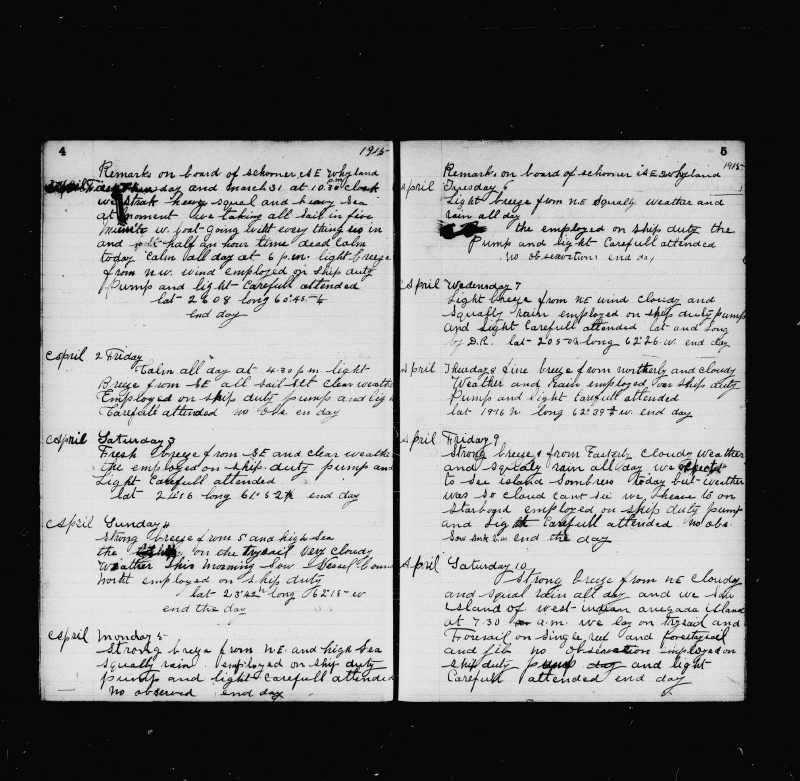 4 1915
Remarks on board of schooner A E Whyland
day and march 31 at 10.30 pm clock
we strak heavy squal and heavy sea
at moment we taking all sail in five
w. Going with every thing us in
and half an hour time dead calm
today calm all day at 6 p.m. light breeze
from n.w. wind employed on ship duty
Pump and light carefull attended
lat 26 08 long 60.45
end day
April 2 Friday
Calm all day at 4.30 p.m. light
Breeze from SE all sail set clear weather
Employed on ship duty pump and ligh
Carefull attended no obs. en day
April Saturday 3
Fresh breeze from SE and clear weathe
the employed on ship duty pump and
Light carefull attended
lat long end day
April Sunday 4
Strong breeze from S and high sea
the on the trysail very cloudy
weather this morning saw Vessel boun
north employed on ship duty
lat 23°42 n long 62°18 w
end the day
April monday 5
Strong breeze from N.E. and high sea
squally rain employed on ship duty
pump and light carefull attended
no observed end day
5
1915
Remarks on board of schooner A E Whyland
April Tuesday 6
Light breeze from NE squally weather and
rain all day
the employed on ship duty the
Pump and light carefull attended
no observations end day
April Wednesday 7
Light breeze from NE wind cloudy and
squally rain employed on ship duty pump
and light carefull attended lat and long
by D.R. lat 20 long 62°26 w. end day
April Thursday 8 fine breeze from northerly and cloudy
Weather and rain employed on ship duty
Pump and light carefull attended
lat 1916 n long 62°39 w. end day
April Friday 9
Strong breeze from Easterly cloudy weather
and squaly rain all day we
to see island Sombrero today but weather
was so cloud cant see we heave to on
starboard employed on ship duty pump
and light carefull attended no obs.
end the day
April Saturday 10
Strong breeze from NE cloudy
and squal rain all day and we saw
island of west-indian anegada island
at 7.30 a.m. we lay on trysail and
Foresail on single reef and
and jib no observation employed on
ship duty pump day and light
Carefull attended end day